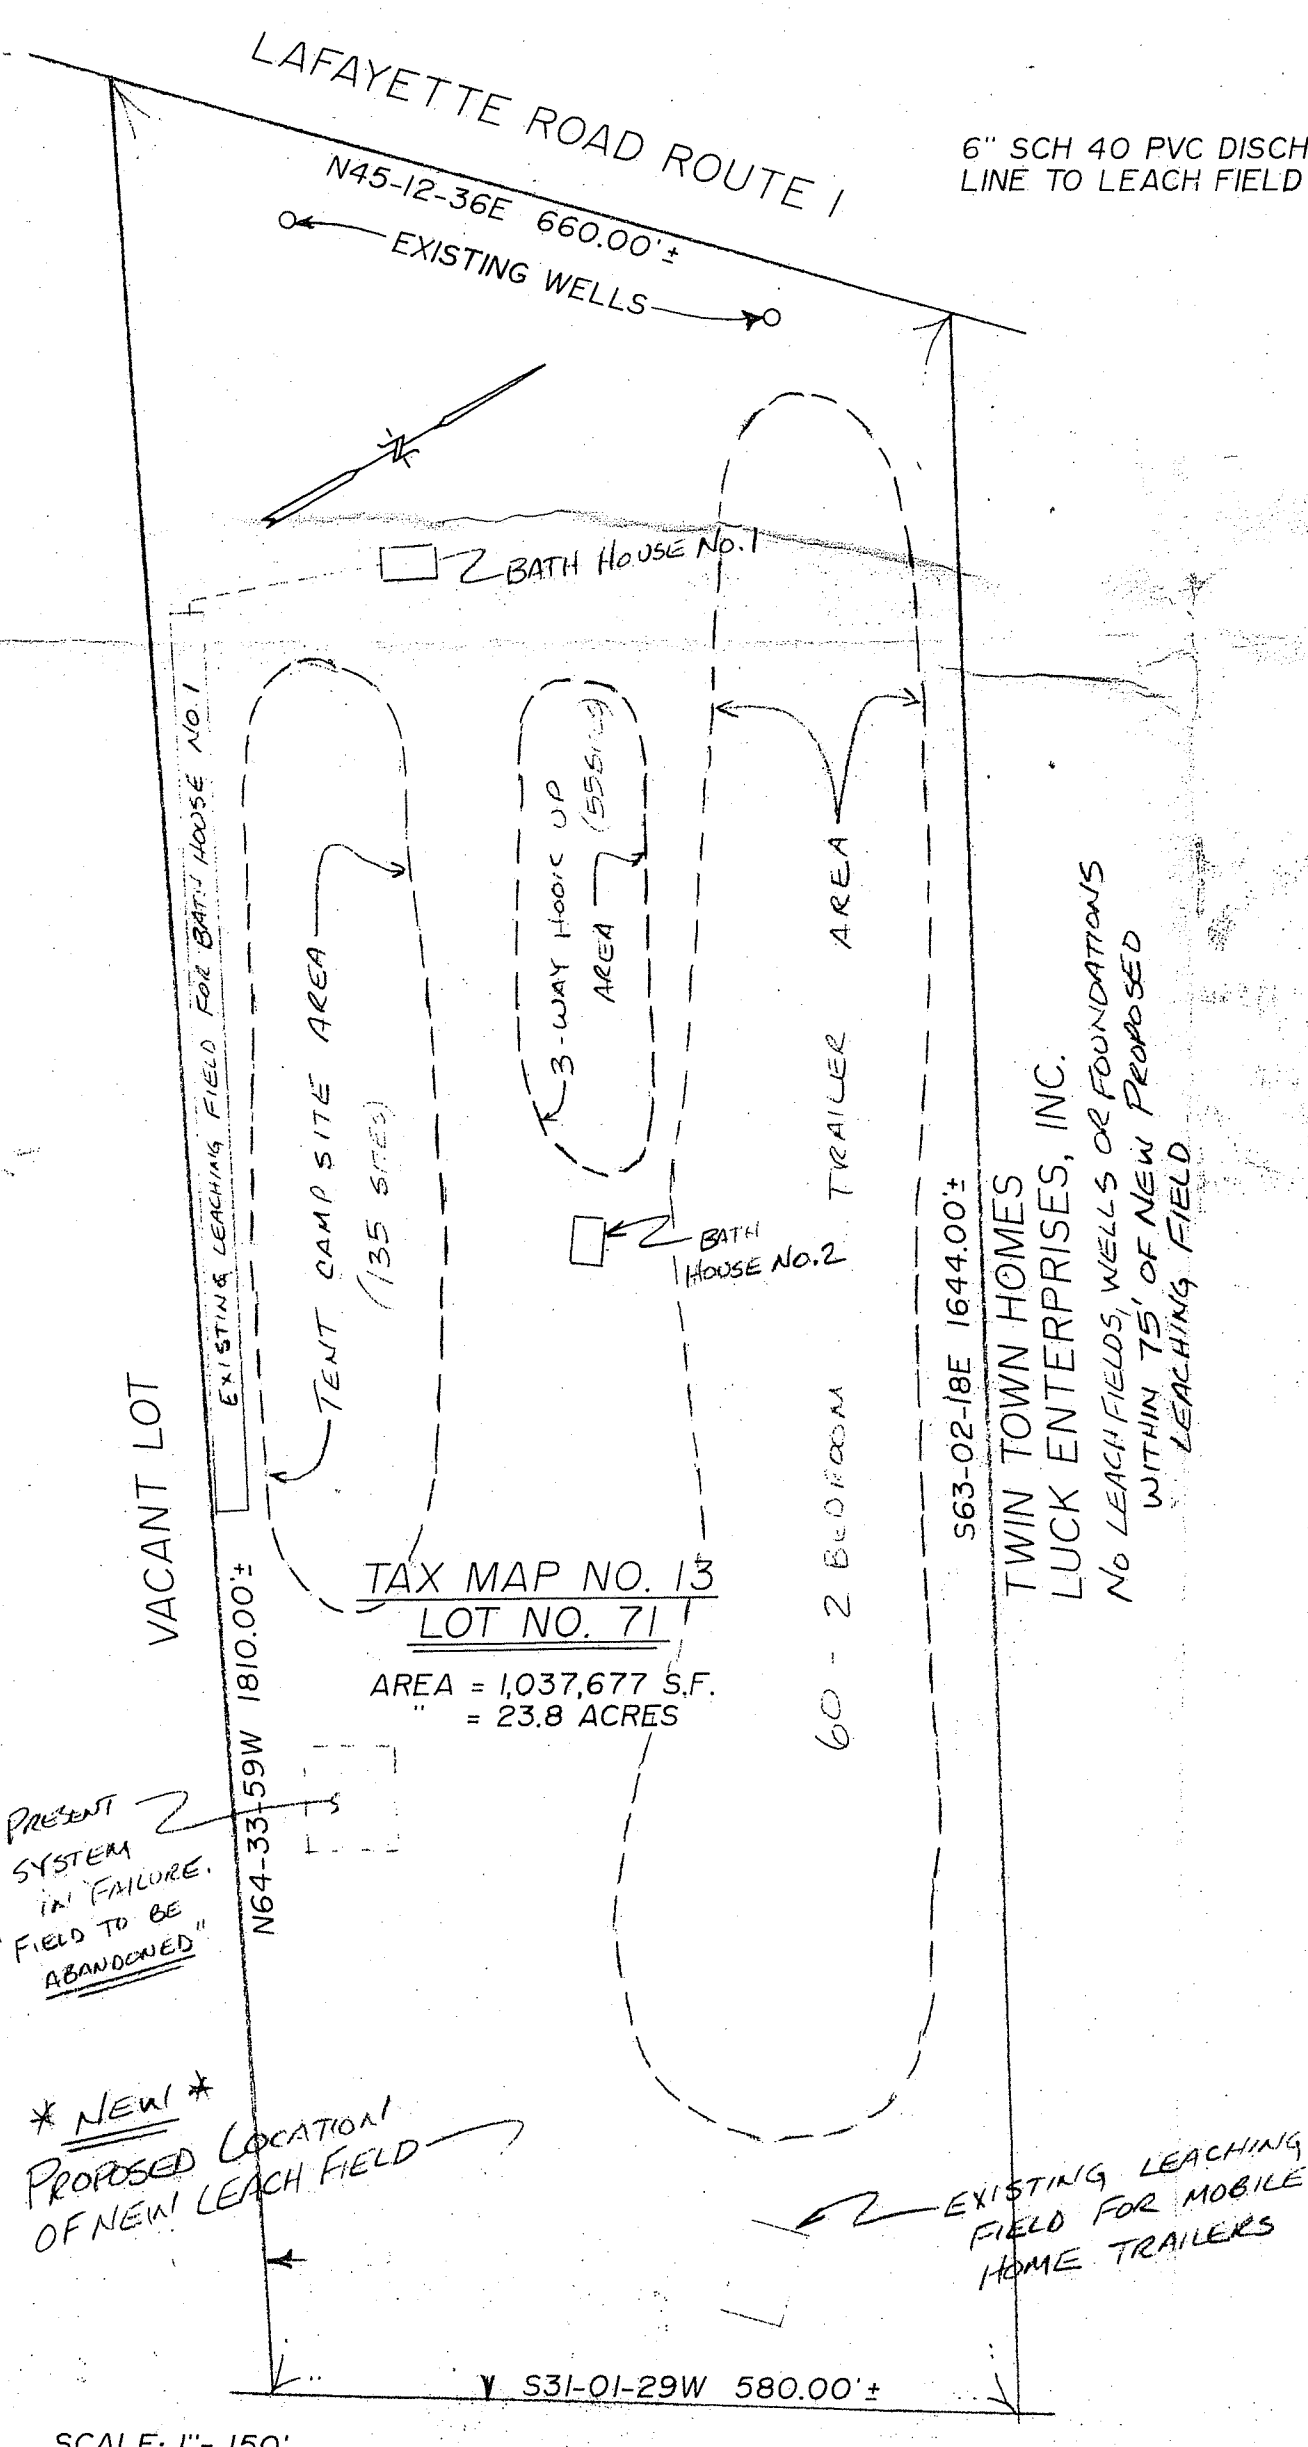 LAFAYETTE ROAD ROUTE 1
6" SCH 40 PVC DISCH
LINE TO LEACH FIELD
N45-12-36E 660.00'±
EXISTING WELLS
N
BATH HOUSE No. 1
EXISTING LEACHING FIELD FOR BATH HOUSE No. 1
TENT CAMPSITE AREA
(135 SITES)
3-WAY HOOK UP
AREA
60 - 2 BEDROOM TRAILER AREA
BATH
HOUSE No. 2
VACANT LOT
N64-33-59W 1810.00'±
S63-02-18E 1644.00'±
TWIN TOWN HOMES
LUCK ENTERPRISES, INC.
No LEACH FIELDS, WELLS OR FOUNDATIONS
WITHIN 75' OF NEW PROPOSED
LEACHING FIELD
TAX MAP NO. 13
LOT NO. 71
AREA = 1,037,677 S.F.
" = 23.8 ACRES
PRESENT
SYSTEM
IN FAILURE.
"FIELD TO BE
ABANDONED"
* NEW *
PROPOSED LOCATION
OF NEW LEACH FIELD
EXISTING LEACHING
FIELD FOR MOBILE
HOME TRAILERS
S31-01-29W 580.00'±
SCALE: 1"= 150'